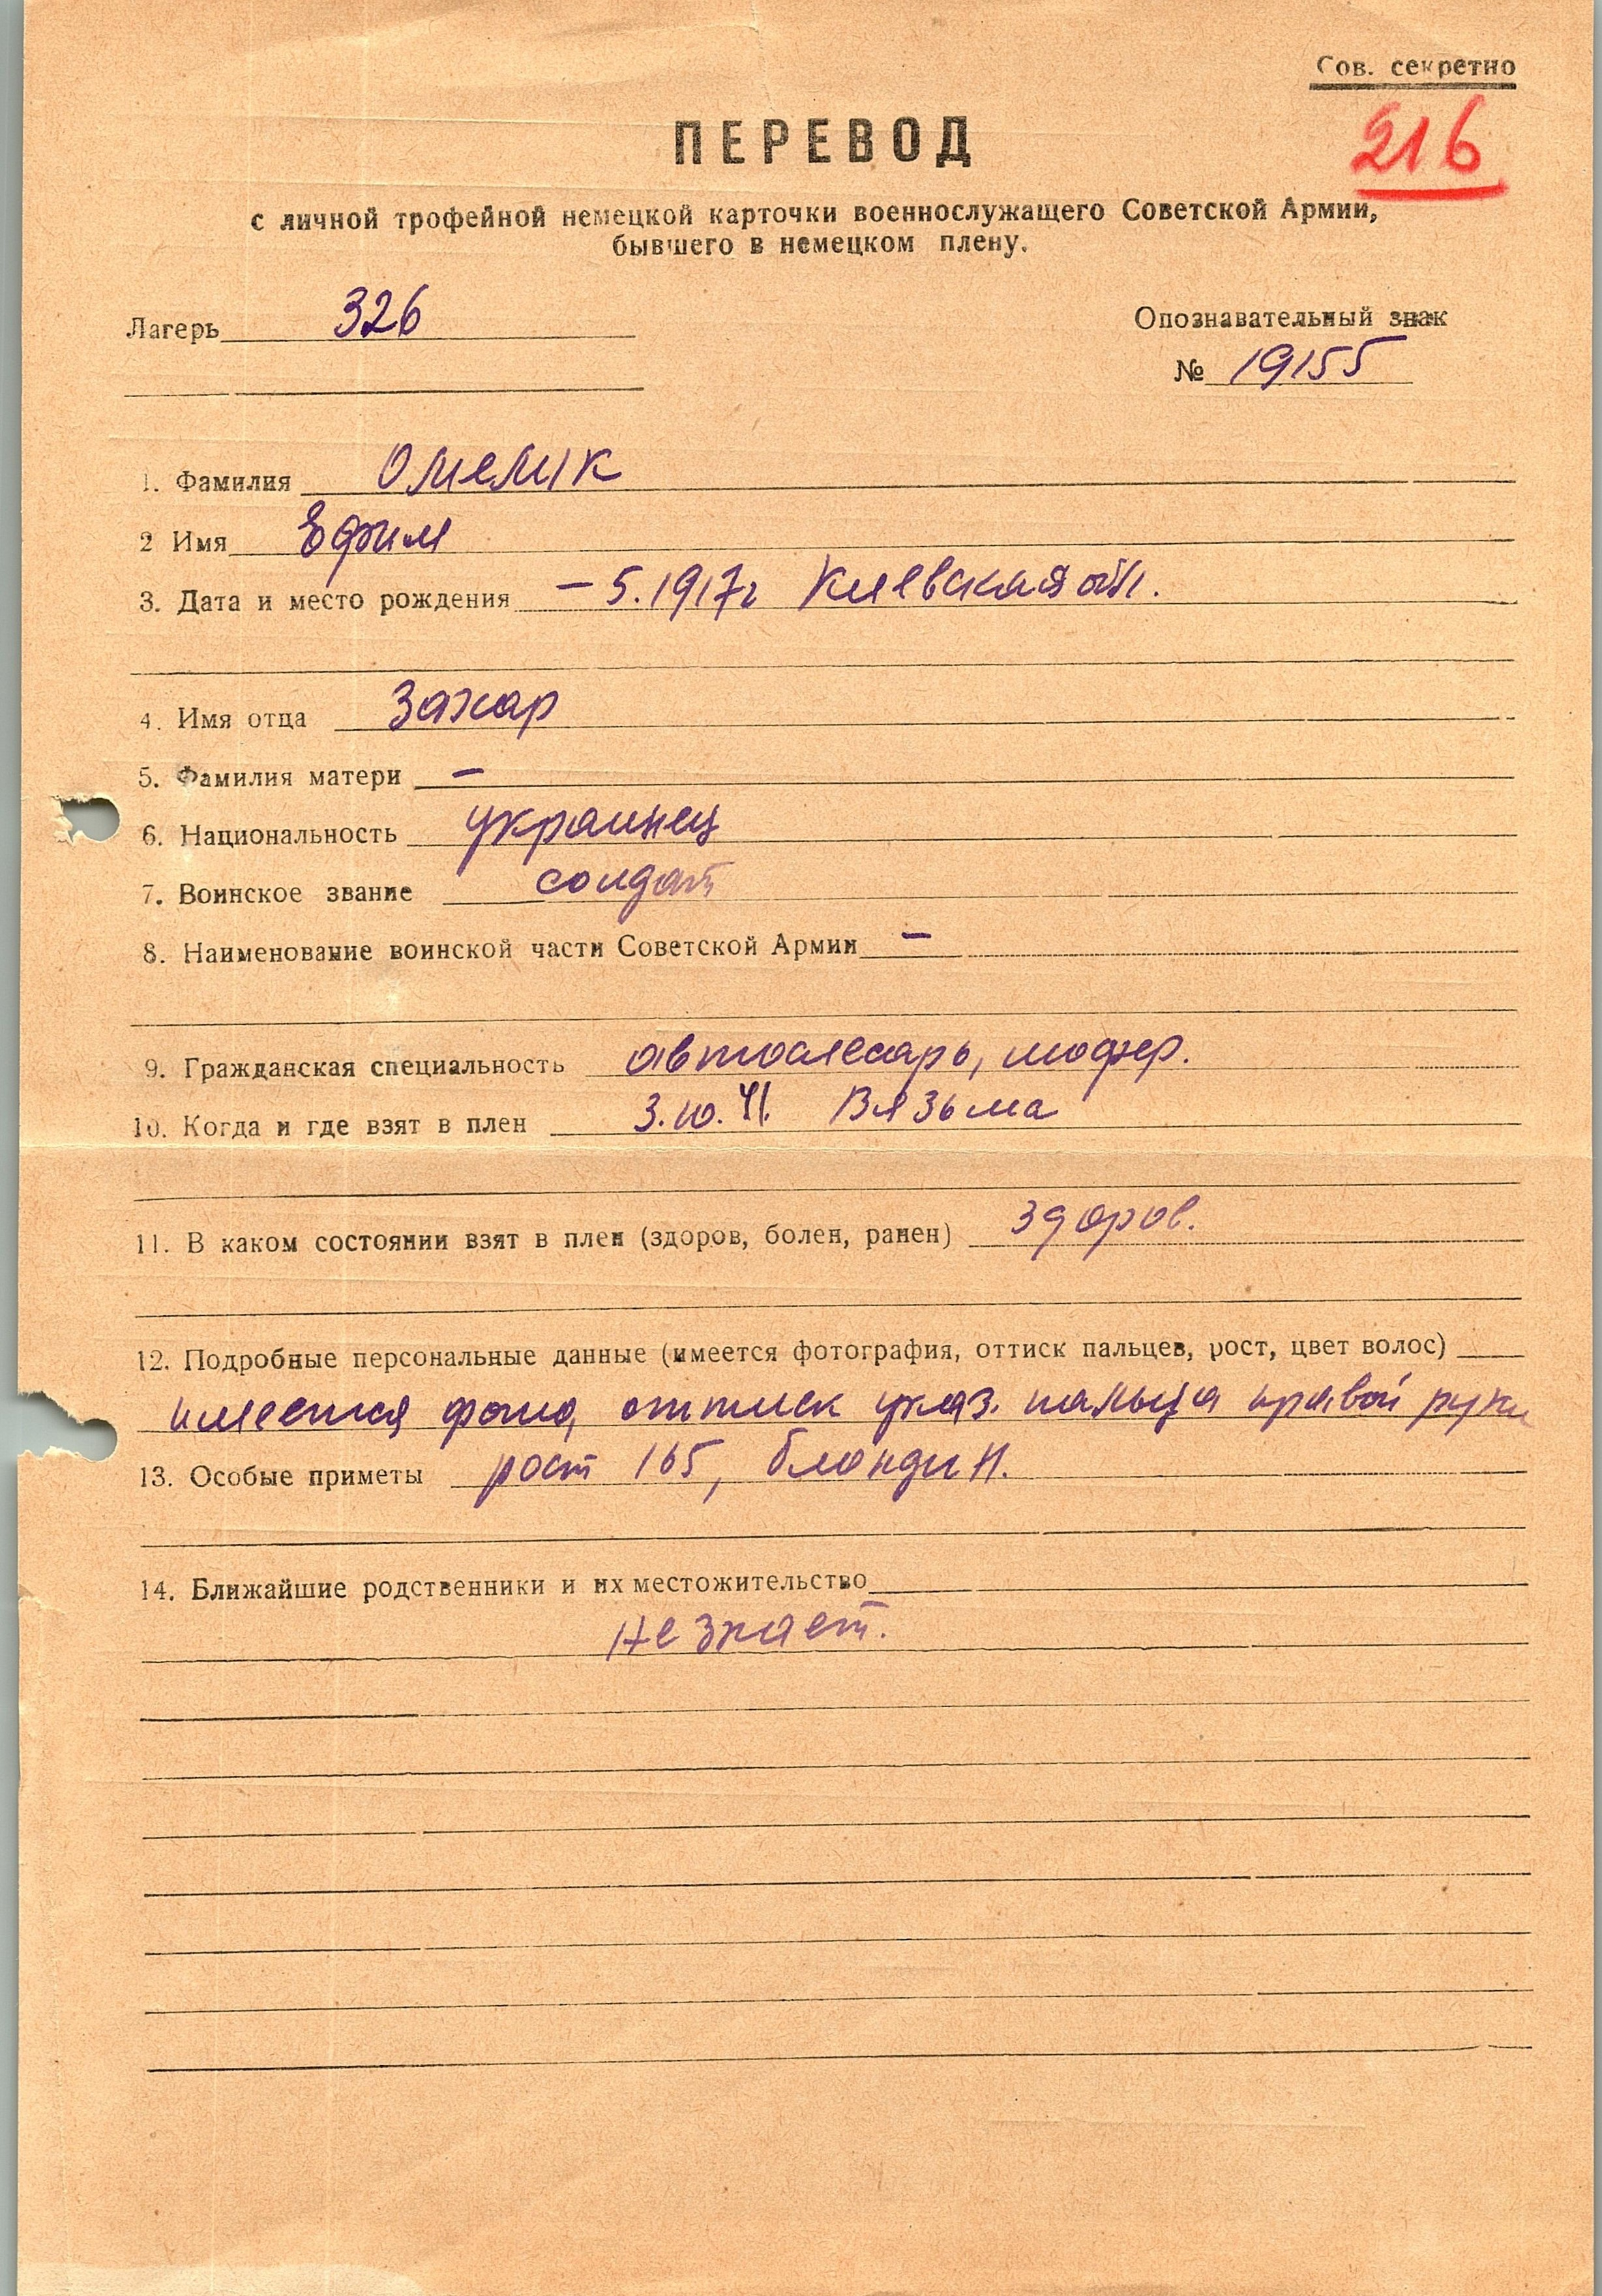 Сов. секретно
216
ПЕРЕВОД
с личной трофейной немецкой карточки военнослужащего Советской Армии,
бывшего в немецком плену.
Лагерь 326
Опознавательный знак
№ 19155
1. Фамилия Омелик
2 Имя Ефим
3. Дата и место рождения – 5.1917г Киевская обл.
4. Имя отца Захар
5. Фамилия матери –
6. Национальность украинец
7. Воинское звание солдат
8. Наименование воинской части Советской Армии –
9. Гражданская специальность автослесарь, шофер.
10. Когда и где взят в плен 3.10.41. Вязьма
11. В каком состоянии взят в плен (здоров, болен, ранен) здоров.
12. Подробные персональные данные (имеется фотография, оттиск пальцев, рост, цвет волос)
имеется фото, оттиск указ. пальца правой руки
13. Особые приметы рост 165, блондин.
14. Ближайшие родственники и их местожительство
не знает.